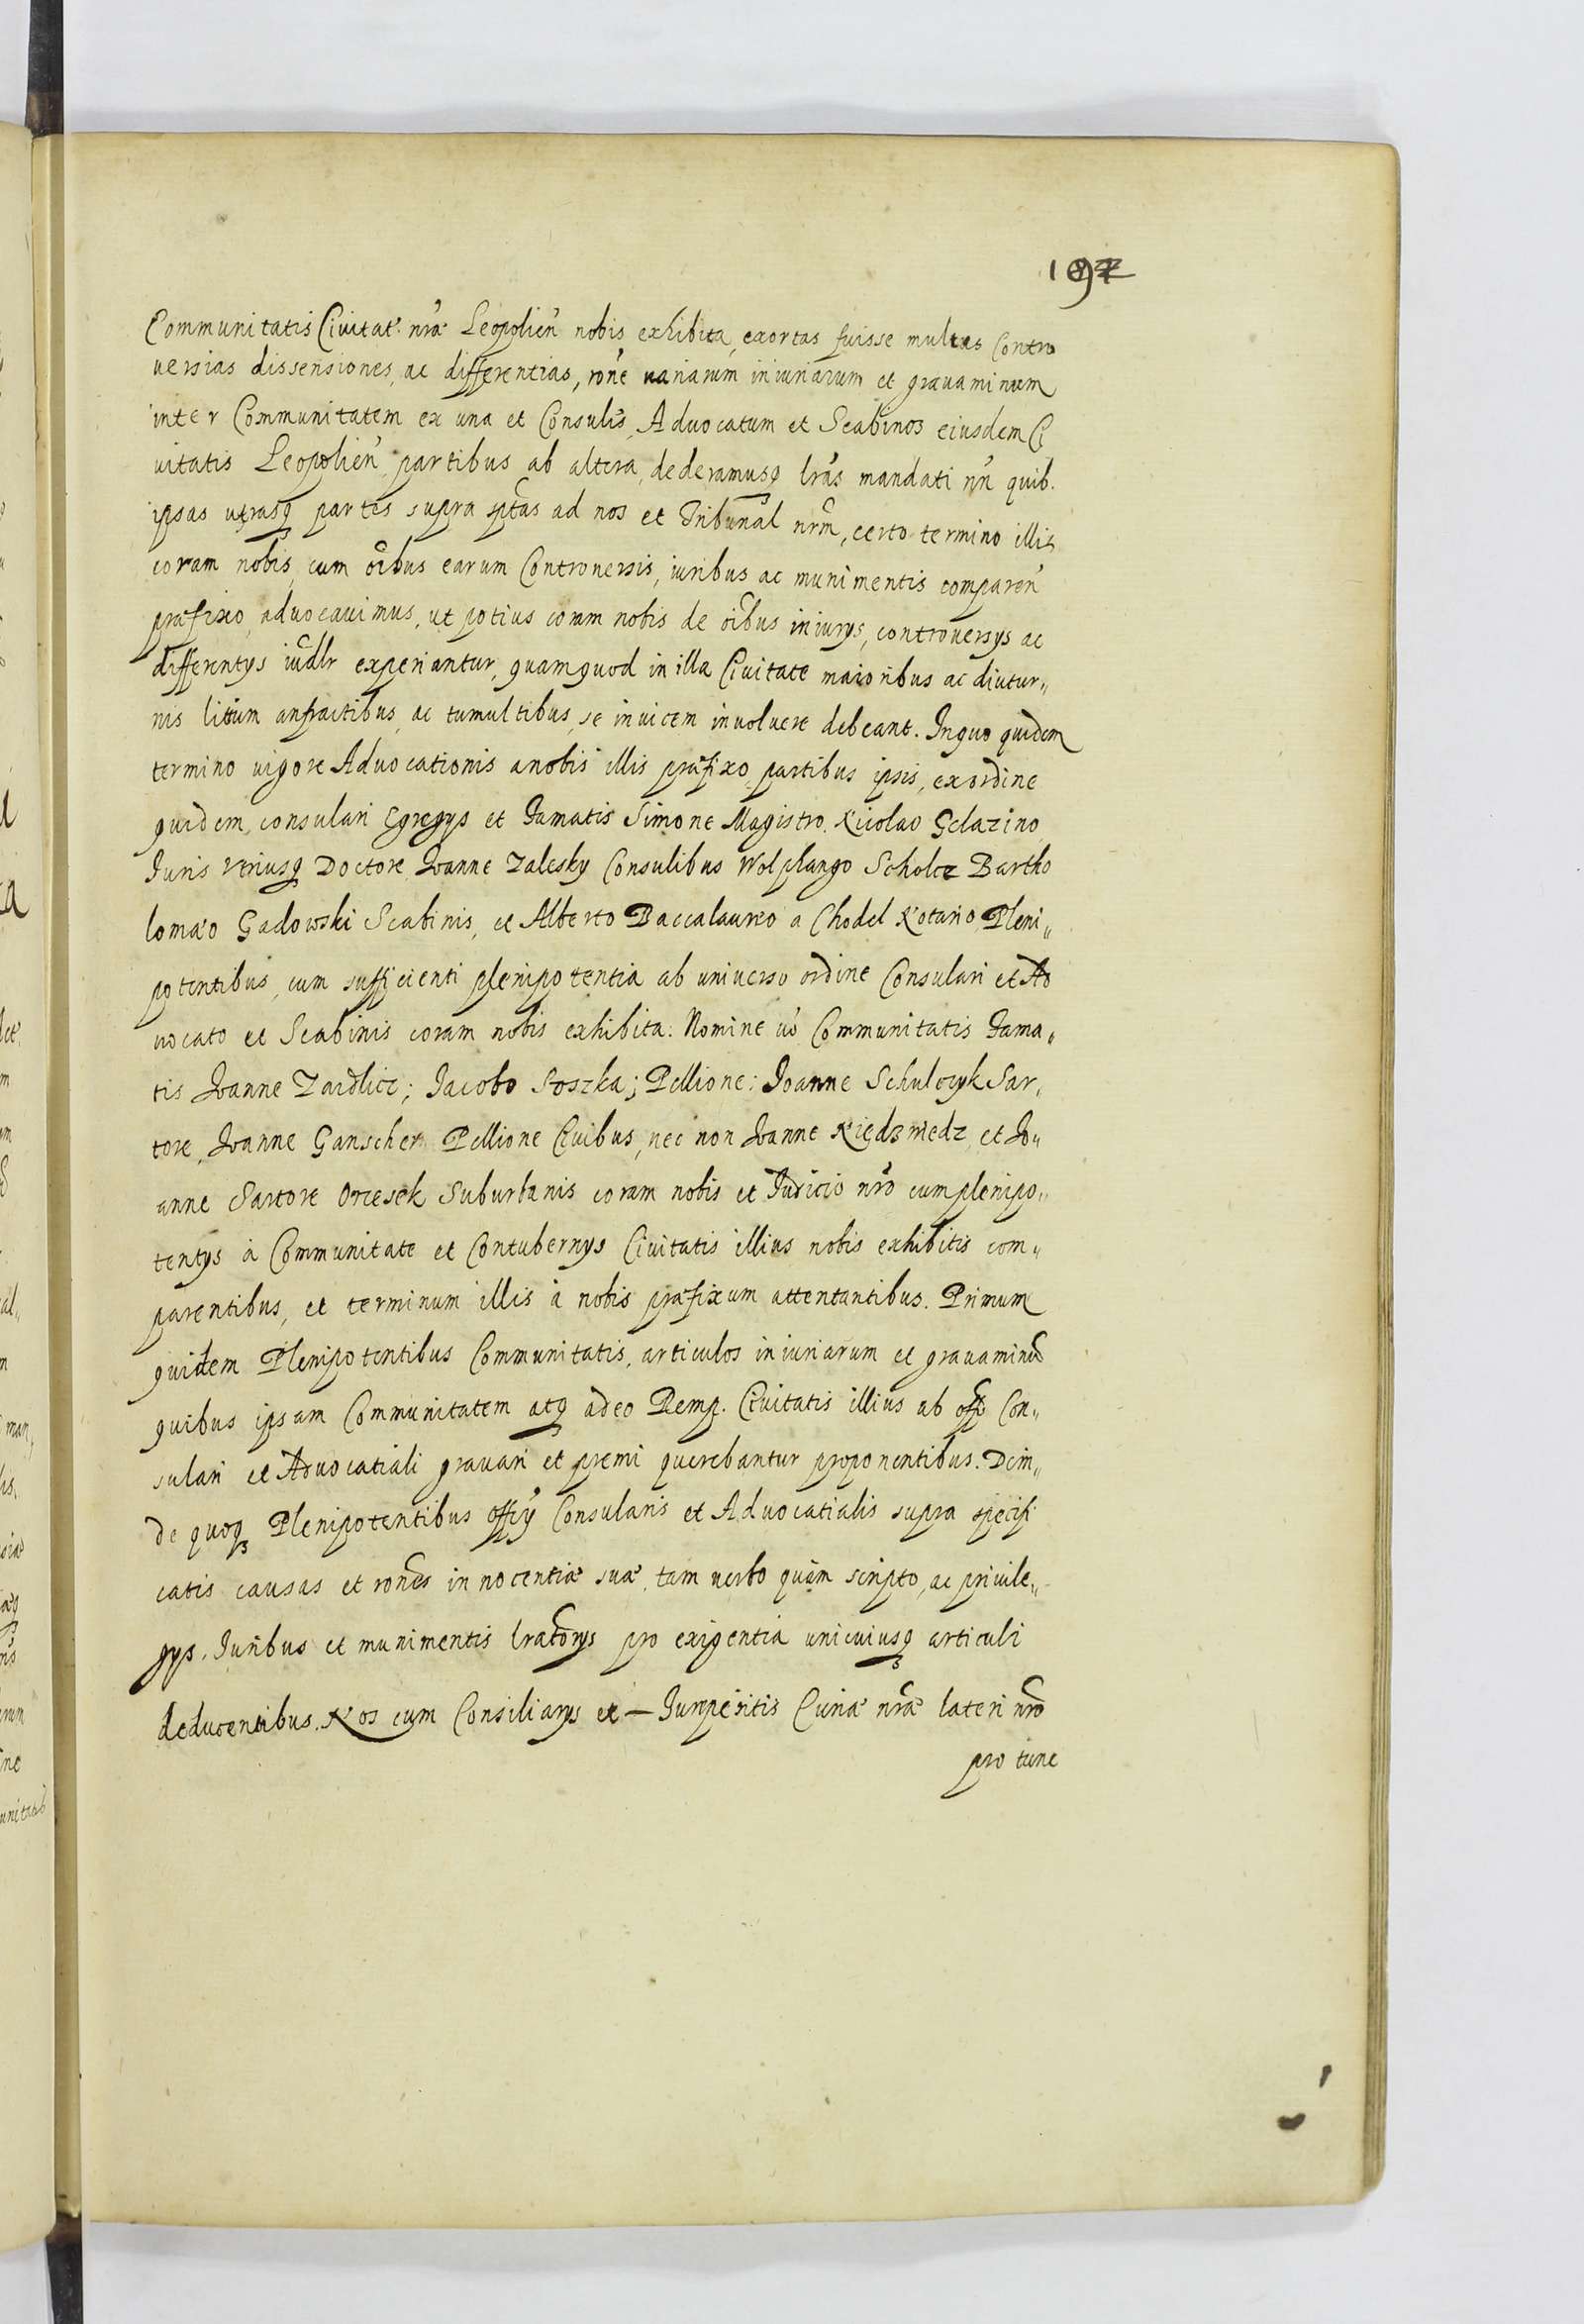 Communitatis Ciuitat. nræ Leopolien̄ nobis exhibita, exortas fuisse multas Contro
uersias dissensiones, ac differentias, rōne uariarum iniuriarum et grauaminum
inter Communitatem ex una et Consulis, Aduocatum et Scabinos eiusdem Ci
uitatis Leopolien̄ partibus ab altera, dederamusq lrās mandati nrī quib.
ipsas utrasq partes supra sptas ad nos et Tribunal nrm, certo termino illis
coram nobis, cum oībus earum Controuersis, iuribus ac munimentis comparen̄
præfixo aduocauimus, ut potius coram nobis de oībus iniurys, controuersys ac
differentys iudlr experiantur, quamquod in illa Ciuitate maioribus ac diutur„
nis litium anfractibus, ac tumultibus, se inuicem inuoluere debeant. Inquo quidem
termino uigore Aduocationis anobis illis præfixo, partibus ipsis, exordine
quidem, consulari Egregys et Famatis Simone Magistro. Nicolao Gelazino
Iuris Vtriusq Doctore Ioanne Zalesky Consulibus Wolphango Scholtz Bartho
lomæo Gadowski Scabinis, et Alberto Baccalaureo a Chodel Notario, Pleni„
potentibus, cum sufficienti plenipotentia ab uniuerso ordine Consulari et Ad
uocato et Scabinis coram nobis exhibita. Nomine uō Communitatis Fama„
tis Ioanne Zaidlicz; Iacobo Soszka; Pellione: Ioanne Schulczyk Sar„
tore, Ioanne Ganscher Pellione Ciuibus, nec non Ioanne Niedzmedz, et Io„
anne Sartore Orzesek Suburbanis coram nobis et Iudicio nrō cum plenipo„
tentys à Communitate et Contubernys Ciuitatis illius nobis exhibitis com„
parentibus, et terminum illis à nobis præfixum attentantibus. Primum
quidem Plenipotentibus Communitatis, articulos iniuriarum et grauaminū
quibus ipsam Communitatem atq adeo Remp. Ciuitatis illius ab offo Con„
sulari et Aduocatiali grauari et premi querebantur proponentibus. Dein„
de quoq Plenipotentibus Offiy Consularis et Aduocatialis supra specifi
catis causas et ronēs innocentiæ suæ, tam uerbo quàm scripto, ac priuile„
gys. Iuribus et munimentis lratorys pro exigentia uniuiusq articuli
deducentibus. Nos cum Consiliarys et — Iurisperitis Curiæ nræ lateri nrō
pro tunc